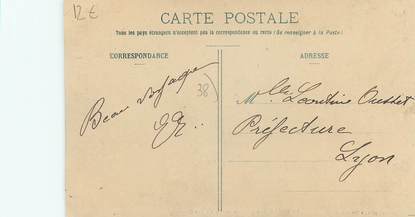 12 €
CARTE POSTALE
Tous les pays étrangers n'acceptent pas la correspondance au recto (Se renseigner à la Poste)
CORRESPONDANCE
ADRESSE
38)
Beau voyage
Mlle Léontine
Préfecture
Lyon